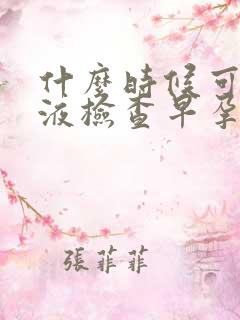 什麼時候可
液檢查早孕
張菲菲